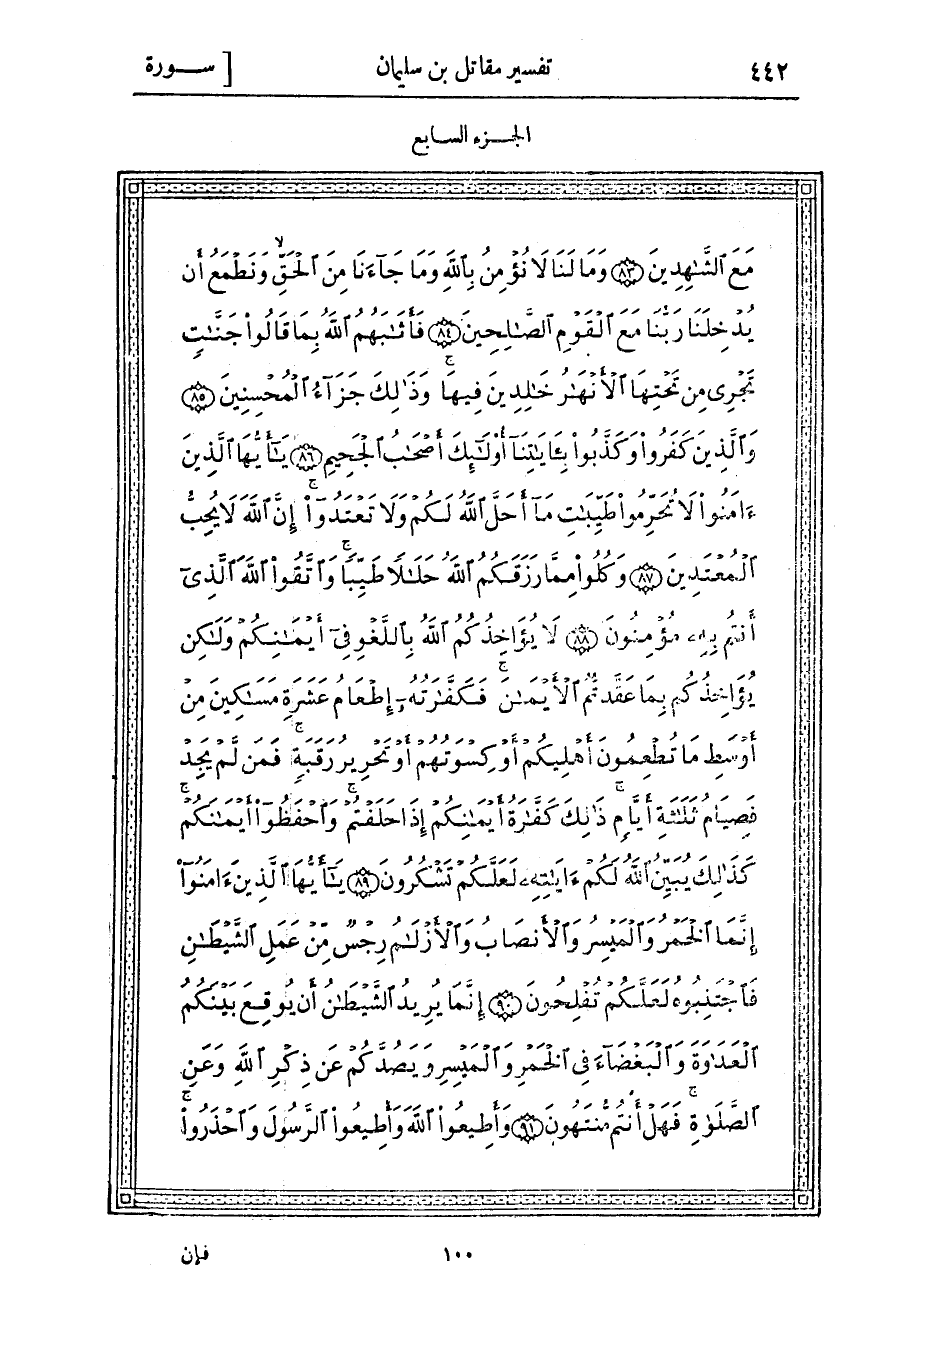 ٤٤٢ تفسير مقاتل بن سليمان [ ســورة
الجــزء السـابع
مَعَ ٱلشَّٰهِدِينَ ٨٣ وَمَا لَنَا لَا نُؤْمِنُ بِٱللَّهِ وَمَا جَآءَنَا مِنَ ٱلْحَقِّ وَنَطْمَعُ أَن
يُدْخِلَنَا رَبُّنَا مَعَ ٱلْقَوْمِ ٱلصَّٰلِحِينَ ٨٤ فَأَثَٰبَهُمُ ٱللَّهُ بِمَا قَالُوا۟ جَنَّٰتٍ
تَجْرِى مِن تَحْتِهَا ٱلْأَنْهَٰرُ خَٰلِدِينَ فِيهَا ۚ وَذَٰلِكَ جَزَآءُ ٱلْمُحْسِنِينَ ٨٥
وَٱلَّذِينَ كَفَرُوا۟ وَكَذَّبُوا۟ بِـَٔايَٰتِنَآ أُو۟لَٰٓئِكَ أَصْحَٰبُ ٱلْجَحِيمِ ٨٦ يَٰٓأَيُّهَا ٱلَّذِينَ
ءَامَنُوا۟ لَا تُحَرِّمُوا۟ طَيِّبَٰتِ مَآ أَحَلَّ ٱللَّهُ لَكُمْ وَلَا تَعْتَدُوٓا۟ ۚ إِنَّ ٱللَّهَ لَا يُحِبُّ
ٱلْمُعْتَدِينَ ٨٧ وَكُلُوا۟ مِمَّا رَزَقَكُمُ ٱللَّهُ حَلَٰلًا طَيِّبًا ۚ وَٱتَّقُوا۟ ٱللَّهَ ٱلَّذِىٓ
أَنتُم بِهِۦ مُؤْمِنُونَ ٨٨ لَا يُؤَاخِذُكُمُ ٱللَّهُ بِٱللَّغْوِ فِىٓ أَيْمَٰنِكُمْ وَلَٰكِن
يُؤَاخِذُكُم بِمَا عَقَّدتُّمُ ٱلْأَيْمَٰنَ ۖ فَكَفَّٰرَتُهُۥٓ إِطْعَامُ عَشَرَةِ مَسَٰكِينَ مِنْ
أَوْسَطِ مَا تُطْعِمُونَ أَهْلِيكُمْ أَوْ كِسْوَتُهُمْ أَوْ تَحْرِيرُ رَقَبَةٍ ۖ فَمَن لَّمْ يَجِدْ
فَصِيَامُ ثَلَٰثَةِ أَيَّامٍ ۚ ذَٰلِكَ كَفَّٰرَةُ أَيْمَٰنِكُمْ إِذَا حَلَفْتُمْ ۚ وَٱحْفَظُوٓا۟ أَيْمَٰنَكُمْ ۚ
كَذَٰلِكَ يُبَيِّنُ ٱللَّهُ لَكُمْ ءَايَٰتِهِۦ لَعَلَّكُمْ تَشْكُرُونَ ٨٩ يَٰٓأَيُّهَا ٱلَّذِينَ ءَامَنُوٓا۟
إِنَّمَا ٱلْخَمْرُ وَٱلْمَيْسِرُ وَٱلْأَنصَابُ وَٱلْأَزْلَٰمُ رِجْسٌ مِّنْ عَمَلِ ٱلشَّيْطَٰنِ
فَٱجْتَنِبُوهُ لَعَلَّكُمْ تُفْلِحُونَ ٩٠ إِنَّمَا يُرِيدُ ٱلشَّيْطَٰنُ أَن يُوقِعَ بَيْنَكُمُ
ٱلْعَدَٰوَةَ وَٱلْبَغْضَآءَ فِى ٱلْخَمْرِ وَٱلْمَيْسِرِ وَيَصُدَّكُمْ عَن ذِكْرِ ٱللَّهِ وَعَنِ
ٱلصَّلَوٰةِ ۖ فَهَلْ أَنتُم مُّنتَهُونَ ٩١ وَأَطِيعُوا۟ ٱللَّهَ وَأَطِيعُوا۟ ٱلرَّسُولَ وَٱحْذَرُوا۟ ۚ
١٠٠ فإن